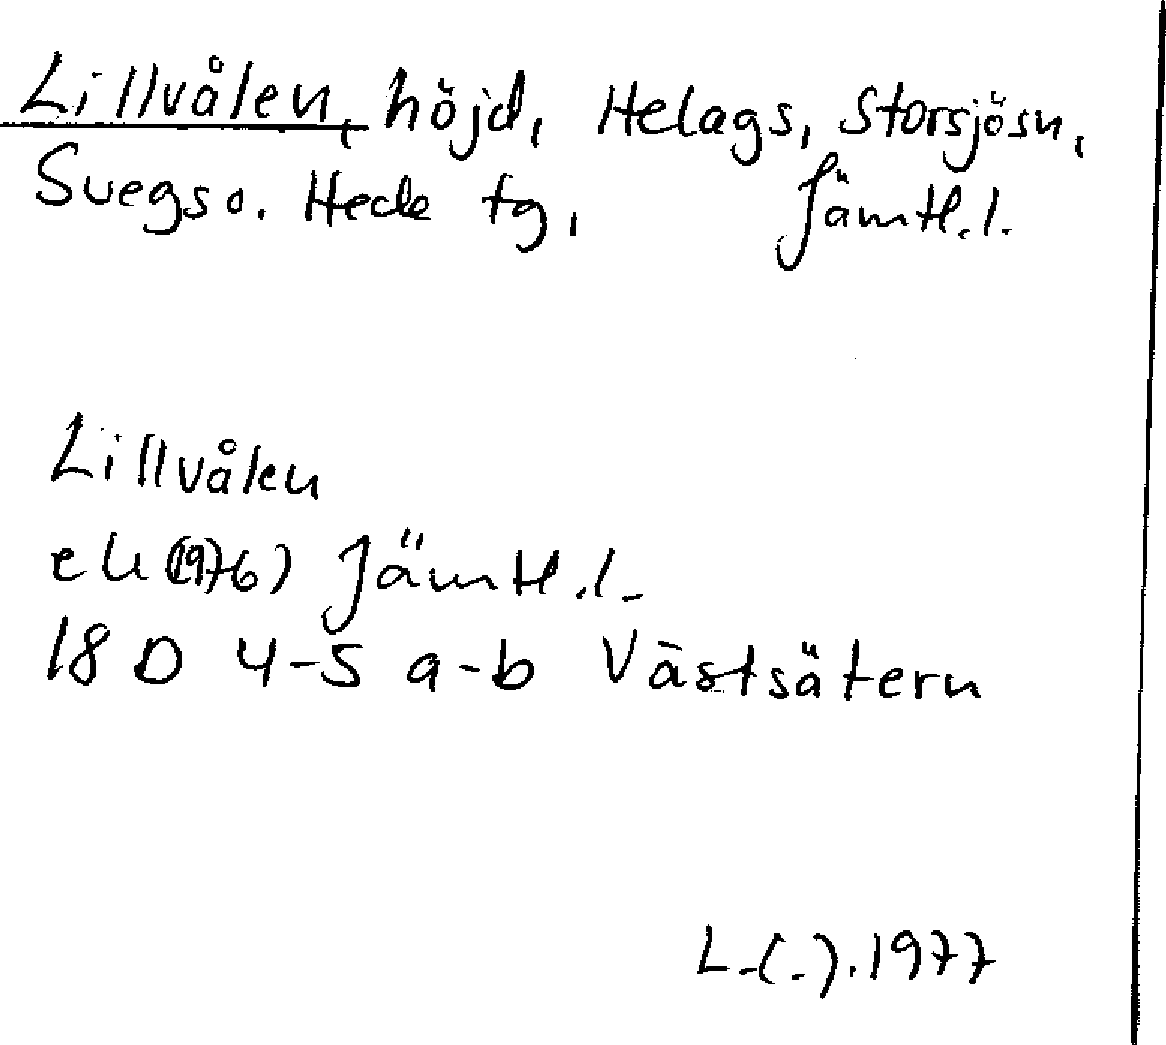 Lillvålen, höjd, Helags, Storsjösn,
Svegs o. Hede tg, Jämtl.l.
Lillvålen
ek (1976) Jämtl.l.
18 D 4-5 a-b Västsätern
L.(-).1977